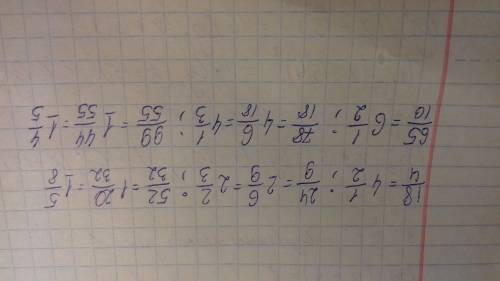 18/4 = 4 1/2; 24/9 = 2 6/9 = 2 2/3; 52/32 = 1 20/32 = 1 5/8
65/10 = 6 1/2; 78/18 = 4 6/18 = 4 1/3; 99/55 = 1 44/55 = 1 4/5